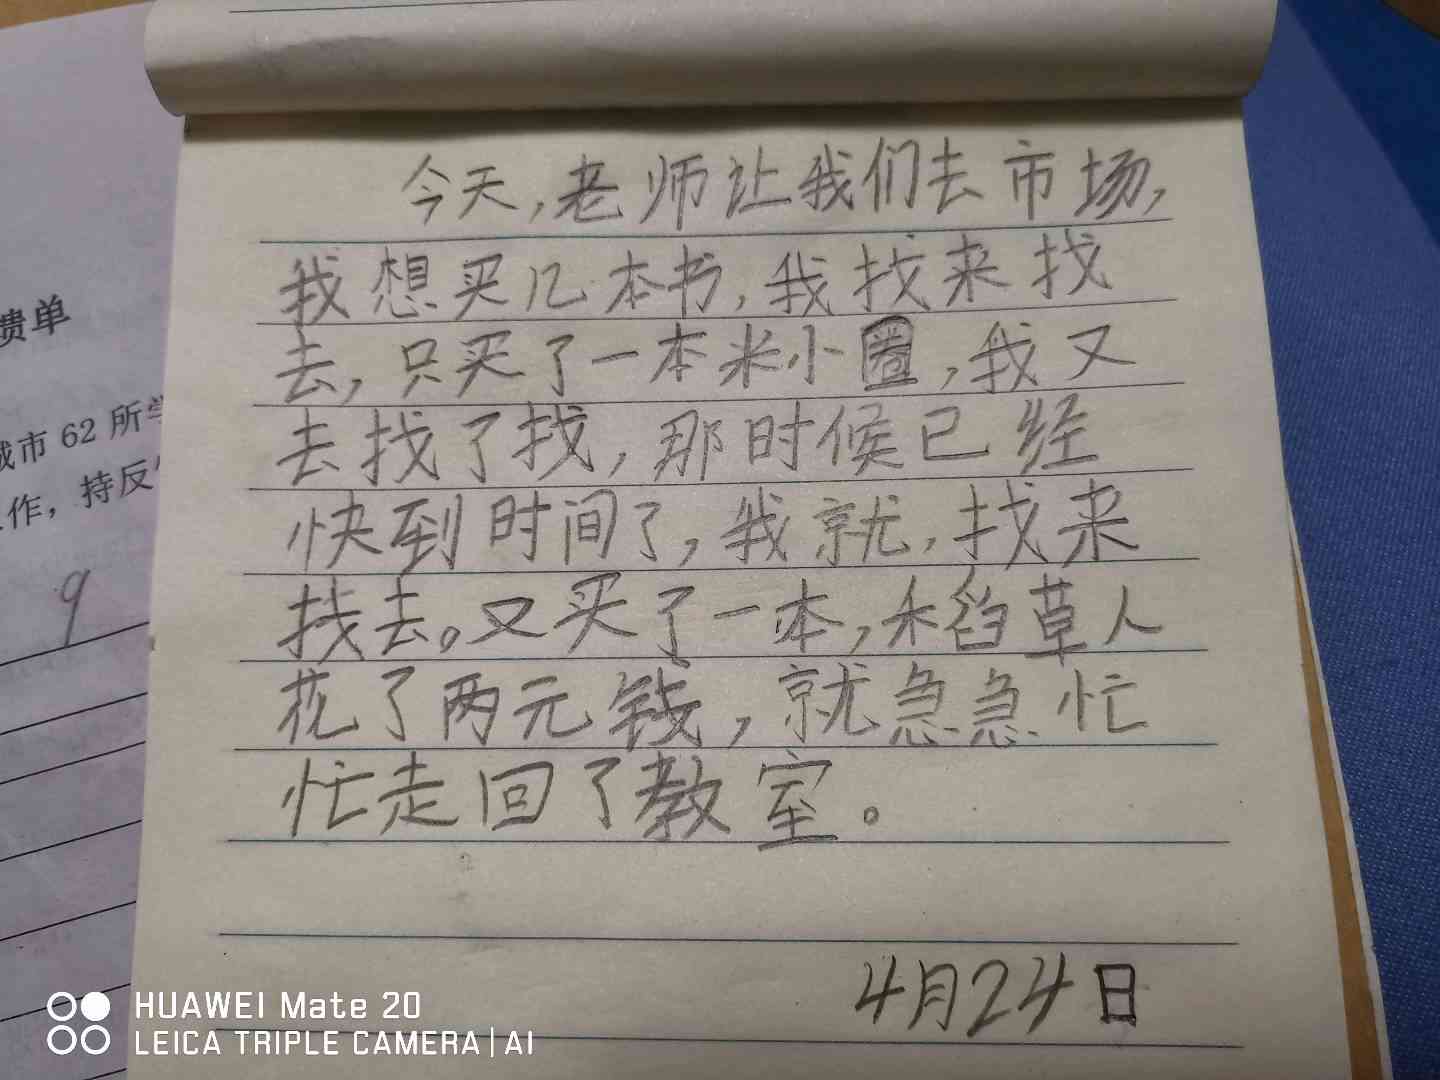 今天,老师让我们去市场,
我想买几本书,我找来找
去,只买了一本米小圈,我又
去找了找,那时候已经
快到时间了,我就,找来
找去。又买了一本,禾稻草人
花了两元钱,就急急忙
忙走回了教室。
4月24日
馈单
城市62所学
作，持反
9
HUAWEI Mate 20
LEICA TRIPLE CAMERA | AI